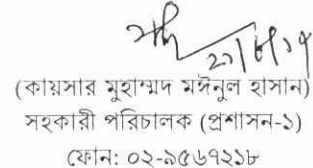 ২১/৮/১৭
(কায়সার মুহাম্মদ মঈনুল হাসান)
সহকারী পরিচালক (প্রশাসন-১)
ফোন: ০২-৯৫৬৭২১৮